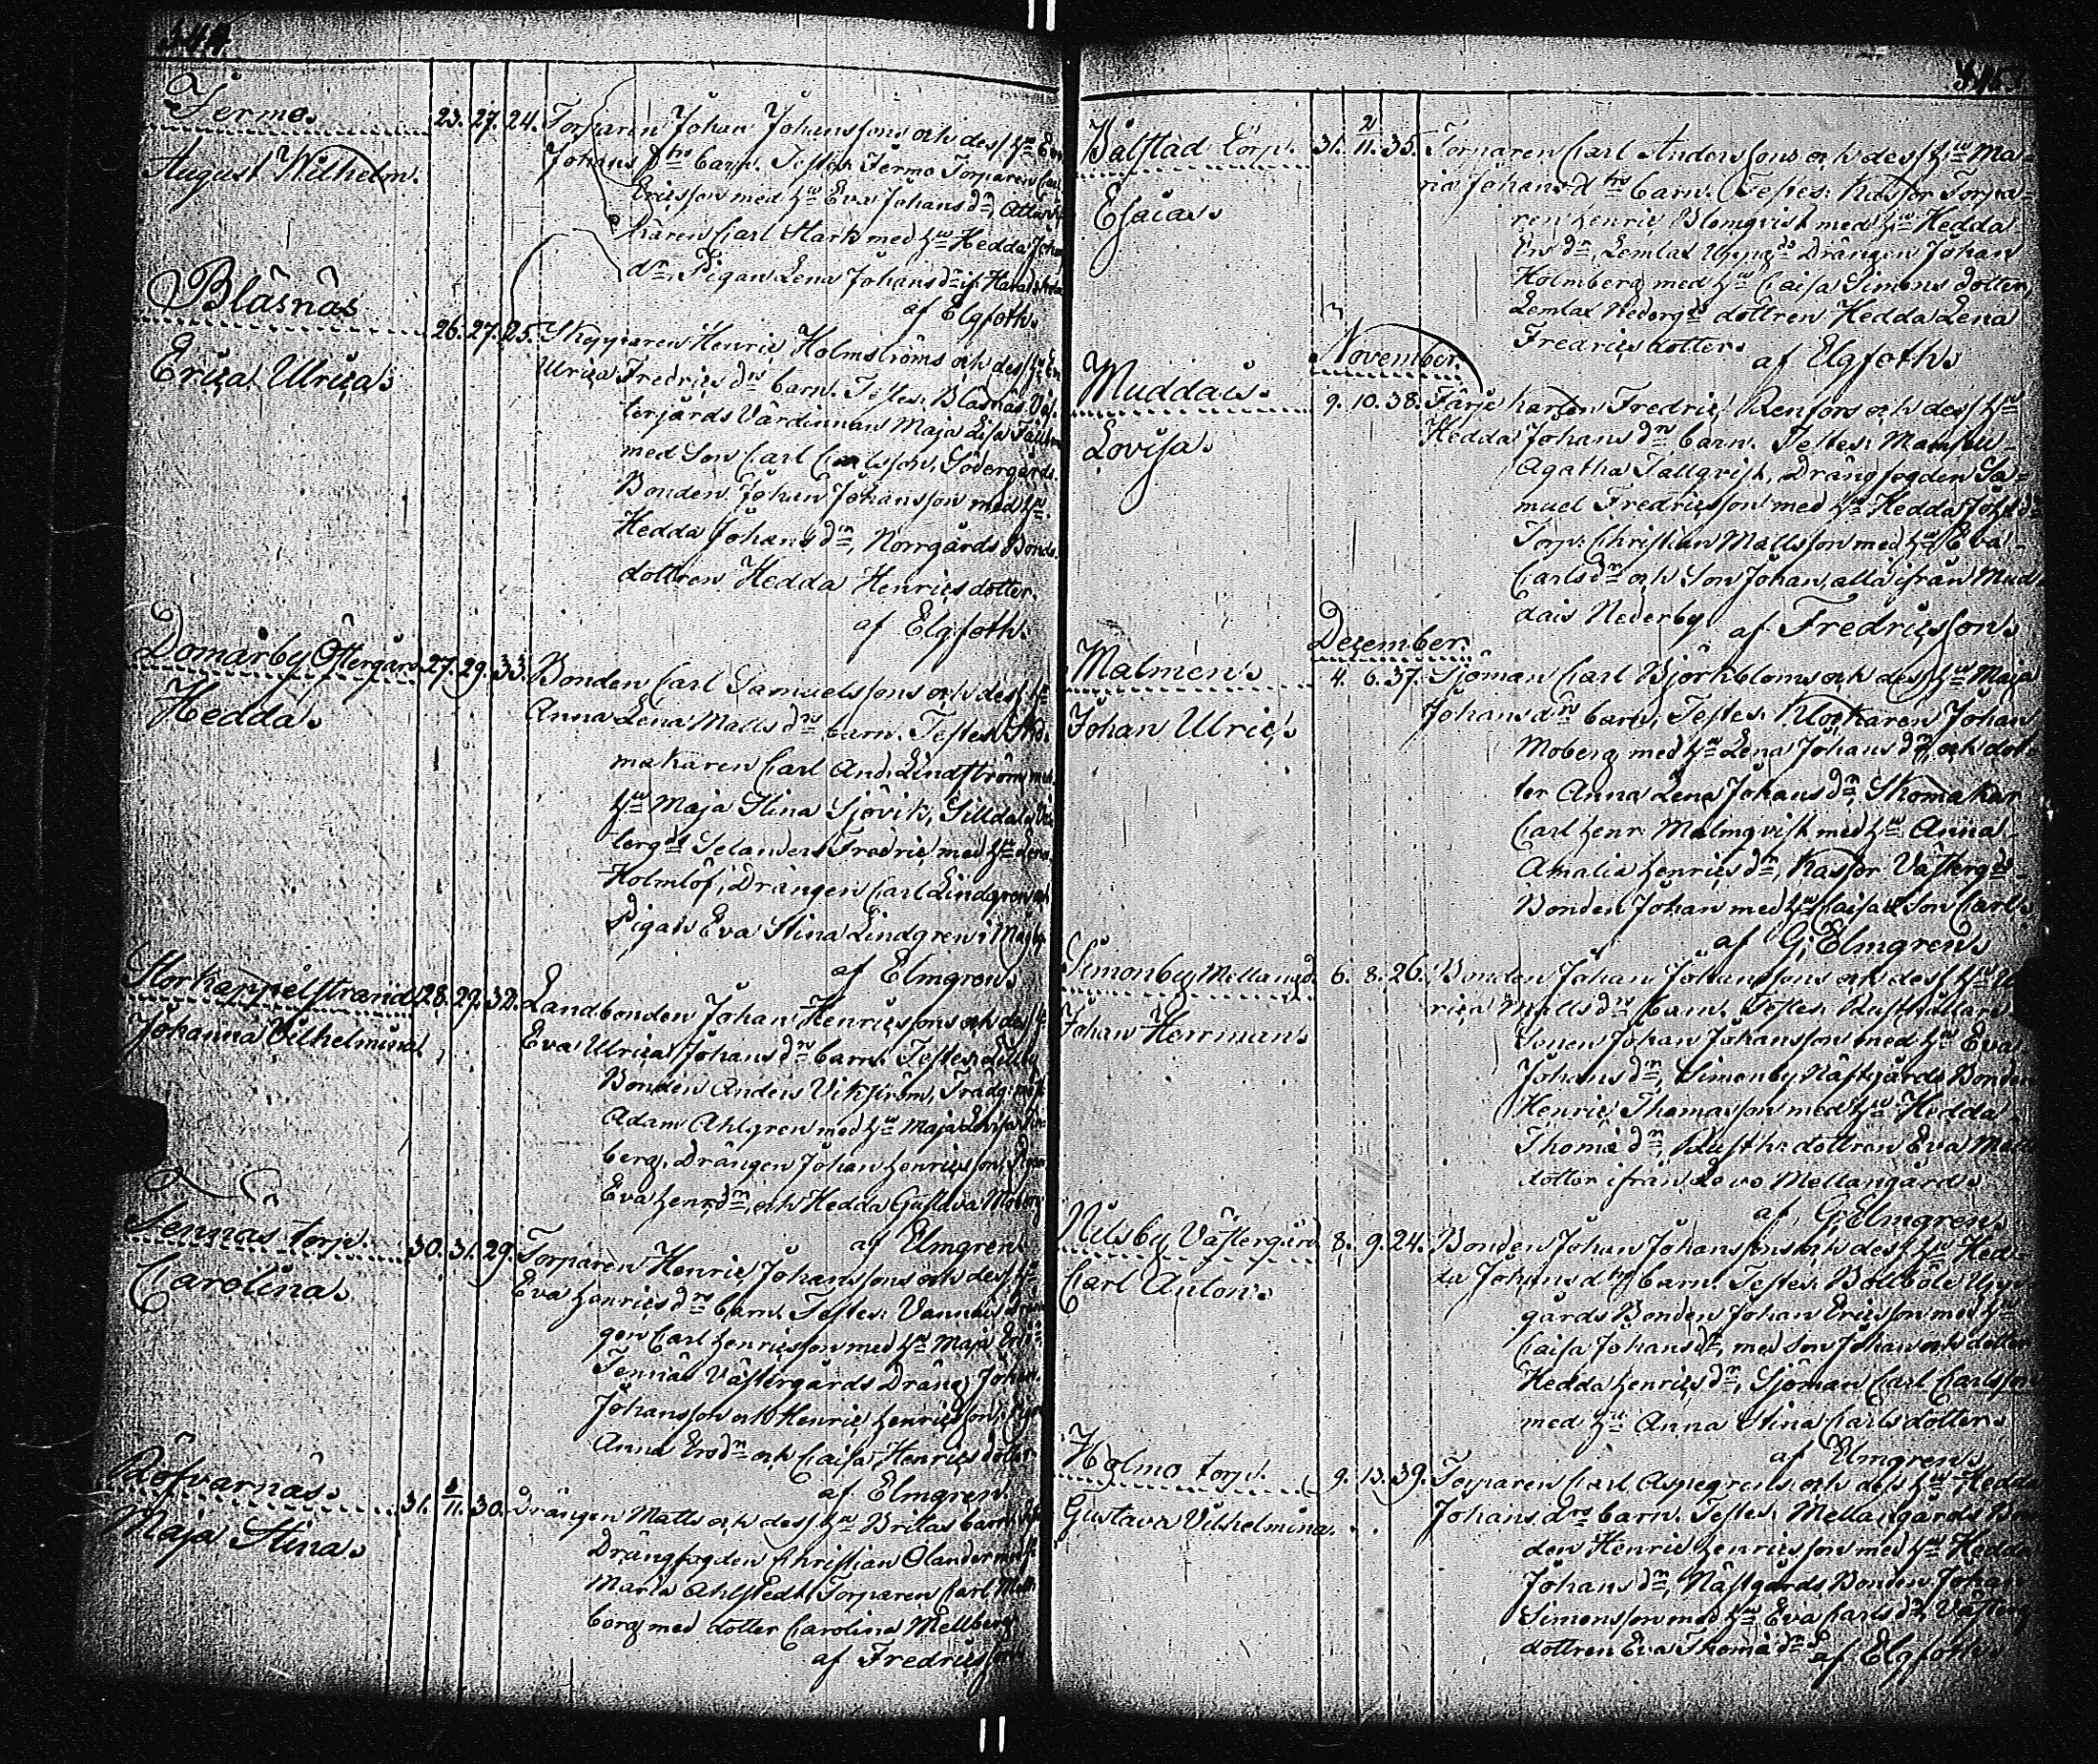 344
Jermo. 23. 27. 24. Torparen Johan Johanssons och dess Hu Eva
August Wilhelm. Johans dtrs barn. Testes Jermo Torparen Carl
Ericsson med Hu Eva Johans dr, Attus
karen Carl Stark med Hu Hedda Johans
dr, Pigan Lena Johans dr
af Elgfoth.
Bläsnäs 26. 27. 25. Skepparen Henric Holmströms och dess Hu
Erica Ulrica. Ulrica Fredrics drs barn. Testes. Bläsnäs Väs-
tergårds Värdinnan Maja Lisa
med Son Carl Carlsson, Södergårds
Bonden Johan Johansson med Hu
Hedda Johans dr, Norrgårds Bonde
dottren Hedda Henrics dotter.
af Elgfoth.
Domarby Östergård 27. 29. 33. Bonden Carl Samuelssons och dess Hu
Hedda. Anna Lena Matts drs barn. Testes Sko-
makaren Carl And. Lindström med
Hu Maja Stina Sjövik, Silldala
tergds Selanders Fredric med Hu Lena
Holmlöf, Drängen Carl Lindgren och
Pigan Eva Stina Lindgren i
af Elmgren.
Storkappelstrand 28. 29. 32. Landbonden Johan Henricssons och dess Hu
Johanna Vilhelmina. Eva Ulrica Johans drs barn. Testes
Bonden Anders Vikström, Trädg: mäst
Adam Ahlgren med Hu Maja Lovisa
berg, Drängen Johan Henricsson, Pigan
Eva Henr: dr, och Hedda Gustava Moberg
af Elmgren
Sennäs torp. 30. 31. 29. Torparen Henric Johanssons och dess Hu
Carolina. Eva Henrics drs barn. Testes: Vannais Drän-
gen Carl Henricsson med Hu Maja
Sennäs Västergårds Dräng Johan
Johansson och Henric Henricsson,
Anna Ers dr och Caisa Henrics dotter
af Elmgren.
Röfvarnäs. 31. 11. 30. Drängen Matts och dess Hu Britas barn.
Maja Stina. Drängfogden Christian Olander med
Maria Ahlstedt, Torparen Carl Mell-
berg med dotter Carolina Mellberg
af Fredricsson
345
Balstad torp. 31. 2/11. 35. Torparen Carl Anderssons och dess Hu Ma-
Esaias. ria Johans dtrs barn. Testes: Kassor Torpa-
ren Henric Blomqvist med Hu Hedda
Ers dr, Lemlax Uppgds Drängen Johan
Holmberg med Hu Caisa Simons dotter,
Lemlax Nedergds dottren Hedda Lena
Fredrics dotter.
af Elgfoth.
November.
Muddais. 9. 10. 38. Färjekarlen Fredric Renfors och dess Hu
Lovisa. Hedda Johans drs barn. Testes: Mamsell
Agatha Tallqvist, Drängfogden Sa-
muel Fredricsson med Hu Hedda Joh: dr
Torp: Christian Mattsson med Hu Eva
Carls dr och Son Johan, alla ifrån Mud-
dais Nederby
af Fredricsson.
December.
Malmen. 4. 6. 37. Sjöman Carl Björkbloms och dess Hu Maja
Johan Ulric. Johans drs barn, Testes: Klockaren Johan
Moberg med Hu Lena Johans dr, och dot-
ter Anna Lena Johans dr, Skomakar
Carl Henr: Malmqvist med Hu Anna
Amalia Henrics dr, Kassor Västergds
Bonden Johan med Hu Caisa & Son Carl.
af G: Elmgren.
Simonby Mellangd. 6. 8. 26. Bonden Johan Johanssons och dess Hu Ul-
Johan Herrman. rica Matts drs barn. Testes: Rusthållare
Sonen Johan Johansson med Hu Eva
Johans dr, Simonby Nästgårds Bonden
Henric Thomasson med Hu Hedda
Thome dr, Rusth: dottren Eva Matts
dotter ifrån Levo Mellangård.
af G: Elmgren.
Nilsby Västergård 8. 9. 24. Bonden Johan Johanssons och dess Hu Hed-
Carl Anton. da Johans dtrs barn. Testes: Bollböle Upp-
gårds Bonden Johan Ericsson med Hu
Caisa Johans dr, med son Johan och dotter
Hedda Henrics dr, Sjöman Carl Carlsson
med Hu Anna Stina Carls dotter.
af Elmgren.
Holmo torp. 9. 13. 39. Torparen Carl Aspegrens och dess Hu Hedda
Gustava Vilhelmina. Johans drs barn. Testes: Mellangårds Bon-
den Henric Henricsson med Hu Hedda
Johans dr, Nästgårds Bonden Johan
Simonsson med Hu Eva Carls dr, Västerg
dottren Eva Thome dr
af Elgfoth.